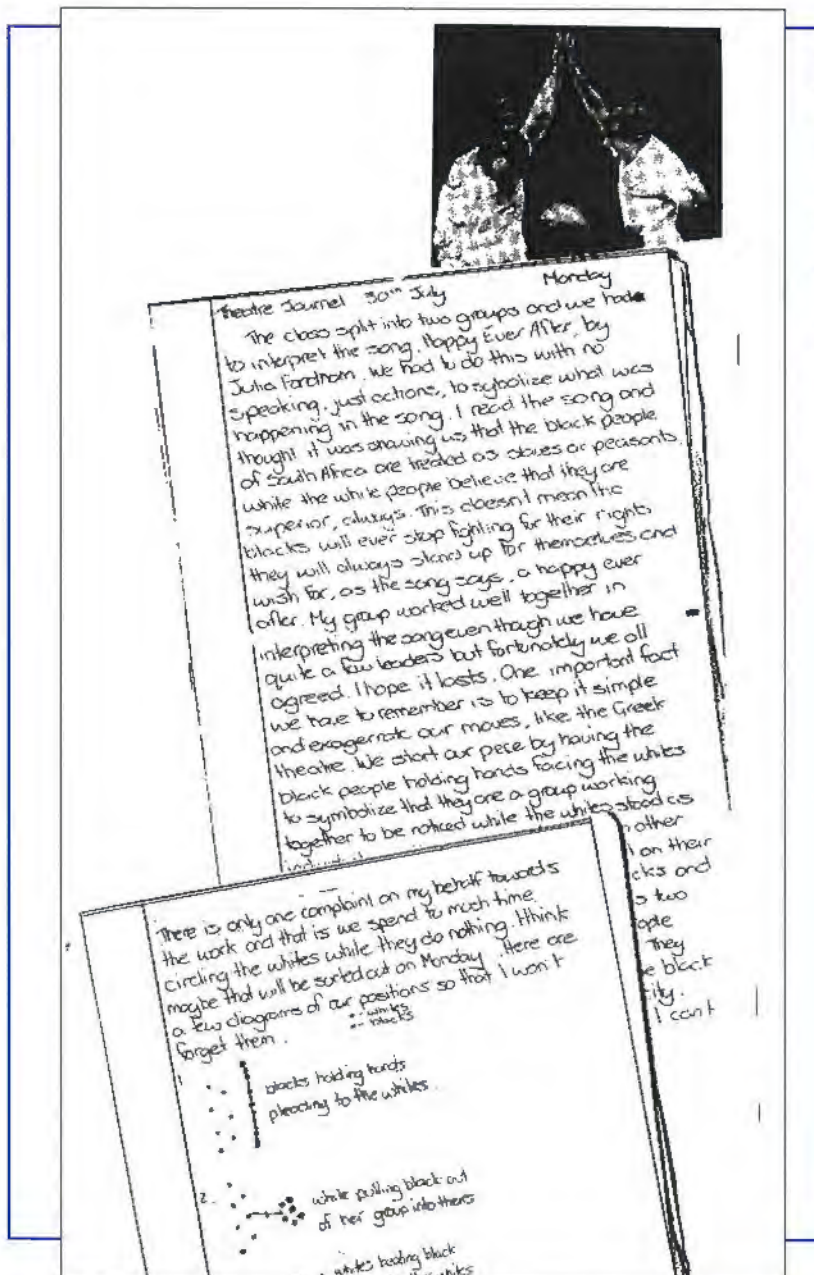 Theatre Journel 30th July Monday
The class split into two groups and we had
to interpret the song, Happy Ever After, by
Julia Fordham. We had to do this with no
speaking, just actions, to sybolize what was
happening in the song. I read the song and
thought it was showing us that the black people
of South Africa are treated as slaves or peasants,
while the white people believe that they are
superior, always. This doesn't mean the
blacks will ever stop fighting for their rights
they will always stand up for themselves and
wish for, as the song says, a happy ever
after. My group worked well together in
interpreting the song even though we have
quite a few leaders but fortunately we all
agreed. I hope it lasts. One important fact
we have to remember is to keep it simple
and exagerrate our moves, like the Greek
theatre. We start our peice by having the
black people holding hands facing the whites
to symbolize that they are a group working
together to be noticed while the whites stood as
other
on their
cks and
s two
ople
They
e black
city.
I can't
There is only one complaint on my behalf towards
the work and that is we spend to much time
circling the whites while they do nothing. I think
maybe that will be sorted out on Monday. Here are
a few diagrams of our positions so that I won't
forget them.
- whites
- blacks
1
blacks holding hands
pleading to the whites.
2.
white pulling black out
of their group into theirs
whites beating black
whites